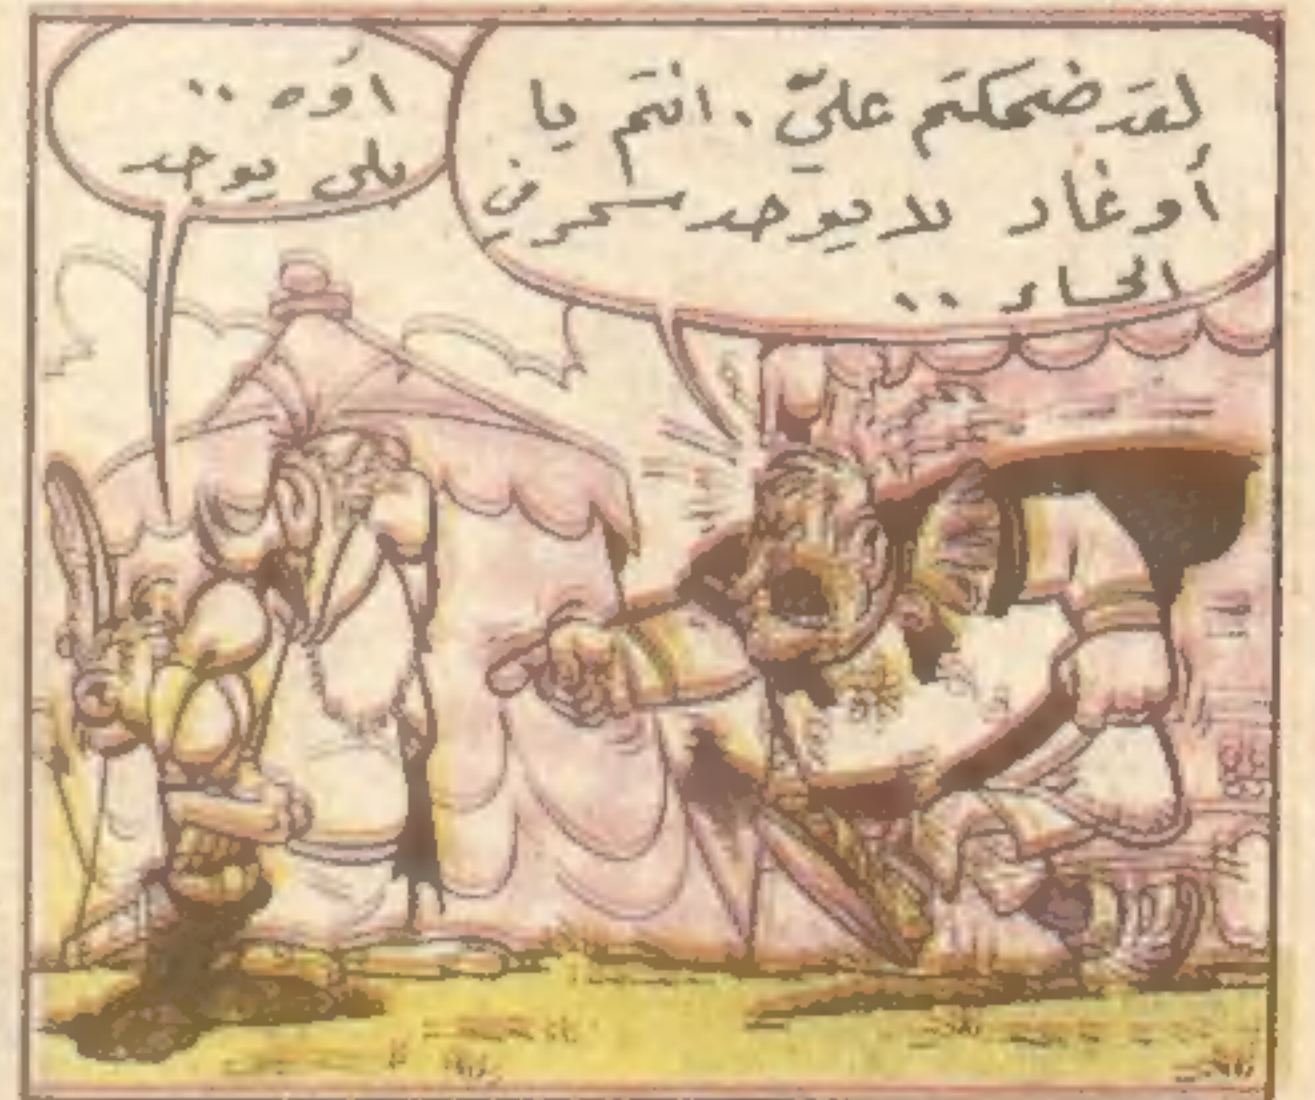 لقد ضحكتم عليّ . انتم يا
أوغاد لا يوجد سحر في
الحساء ..
اوه ..
بلى يوجد